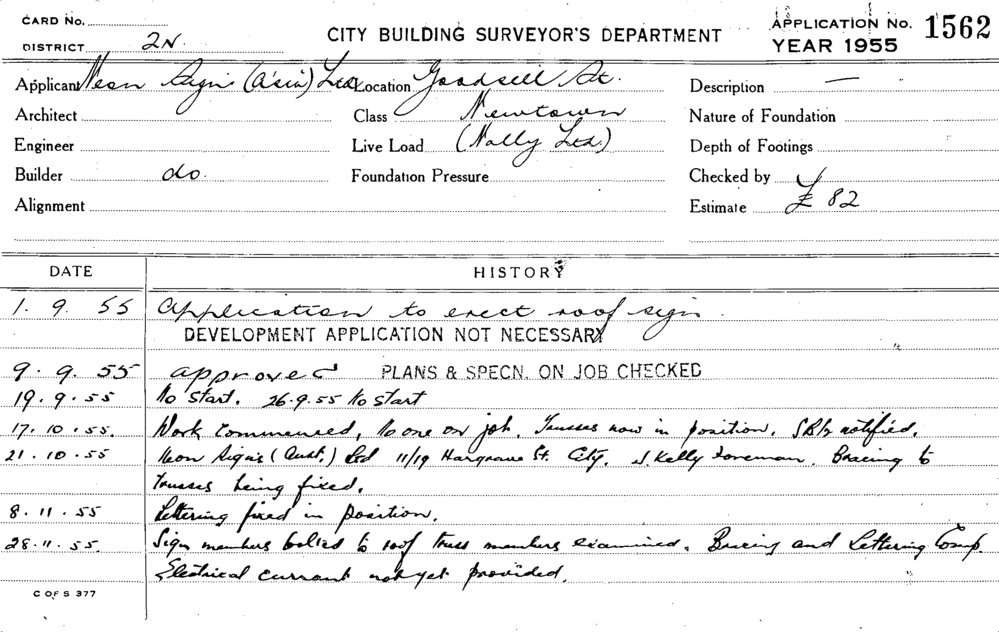 CARD No.
DISTRICT 2N.
CITY BUILDING SURVEYOR'S DEPARTMENT
APPLICATION No. 1562
YEAR 1955
Applicant Neon Signs (A'sia) Ltd
Location Goodsell St.
Description —
Architect
Class Newtown
Nature of Foundation
Engineer
Live Load (Nally Ltd.)
Depth of Footings
Builder do.
Foundation Pressure
Checked by
Alignment
Estimate £ 82
DATE HISTORY
1. 9. 55 Application to erect roof sign.
DEVELOPMENT APPLICATION NOT NECESSARY
9. 9. 55 approved PLANS & SPECN. ON JOB CHECKED
19. 9. 55 No start. 26.9.55 No start
17. 10. 55. Work commenced, No one on job. Trusses now in position. notified.
21. 10. 55 Neon Signs (Aust.) Ltd 11/19 Hargrave St. City. J. Kelly Foreman. Bracing to
trusses being fixed.
8. 11. 55 Lettering fixed in position.
28. 11. 55. Sign members bolted to roof truss members examined. Bracing and Lettering Comp.
Electrical current not yet provided.
C OF S 377